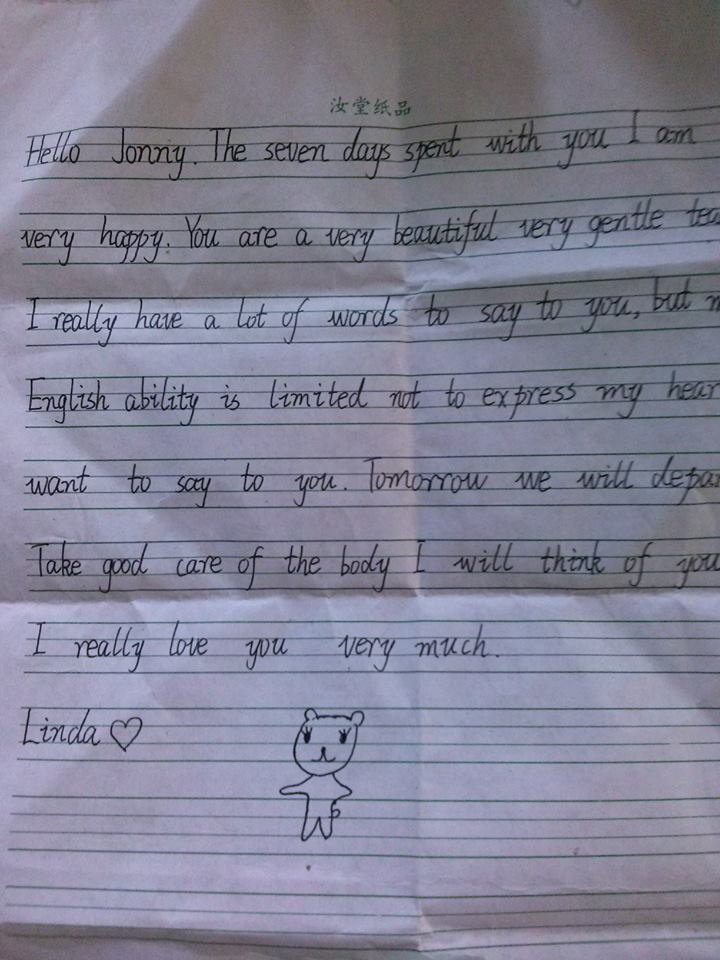 汝堂纸品
Hello Jonny. The seven days spent with you I am
very happy. You are a very beautiful very gentle tea
I really have a lot of words to say to you, but m
English ability is limited not to express my hear
want to say to you. Tomorrow we will depar
Take good care of the body I will think of you
I really love you very much.
Linda♡